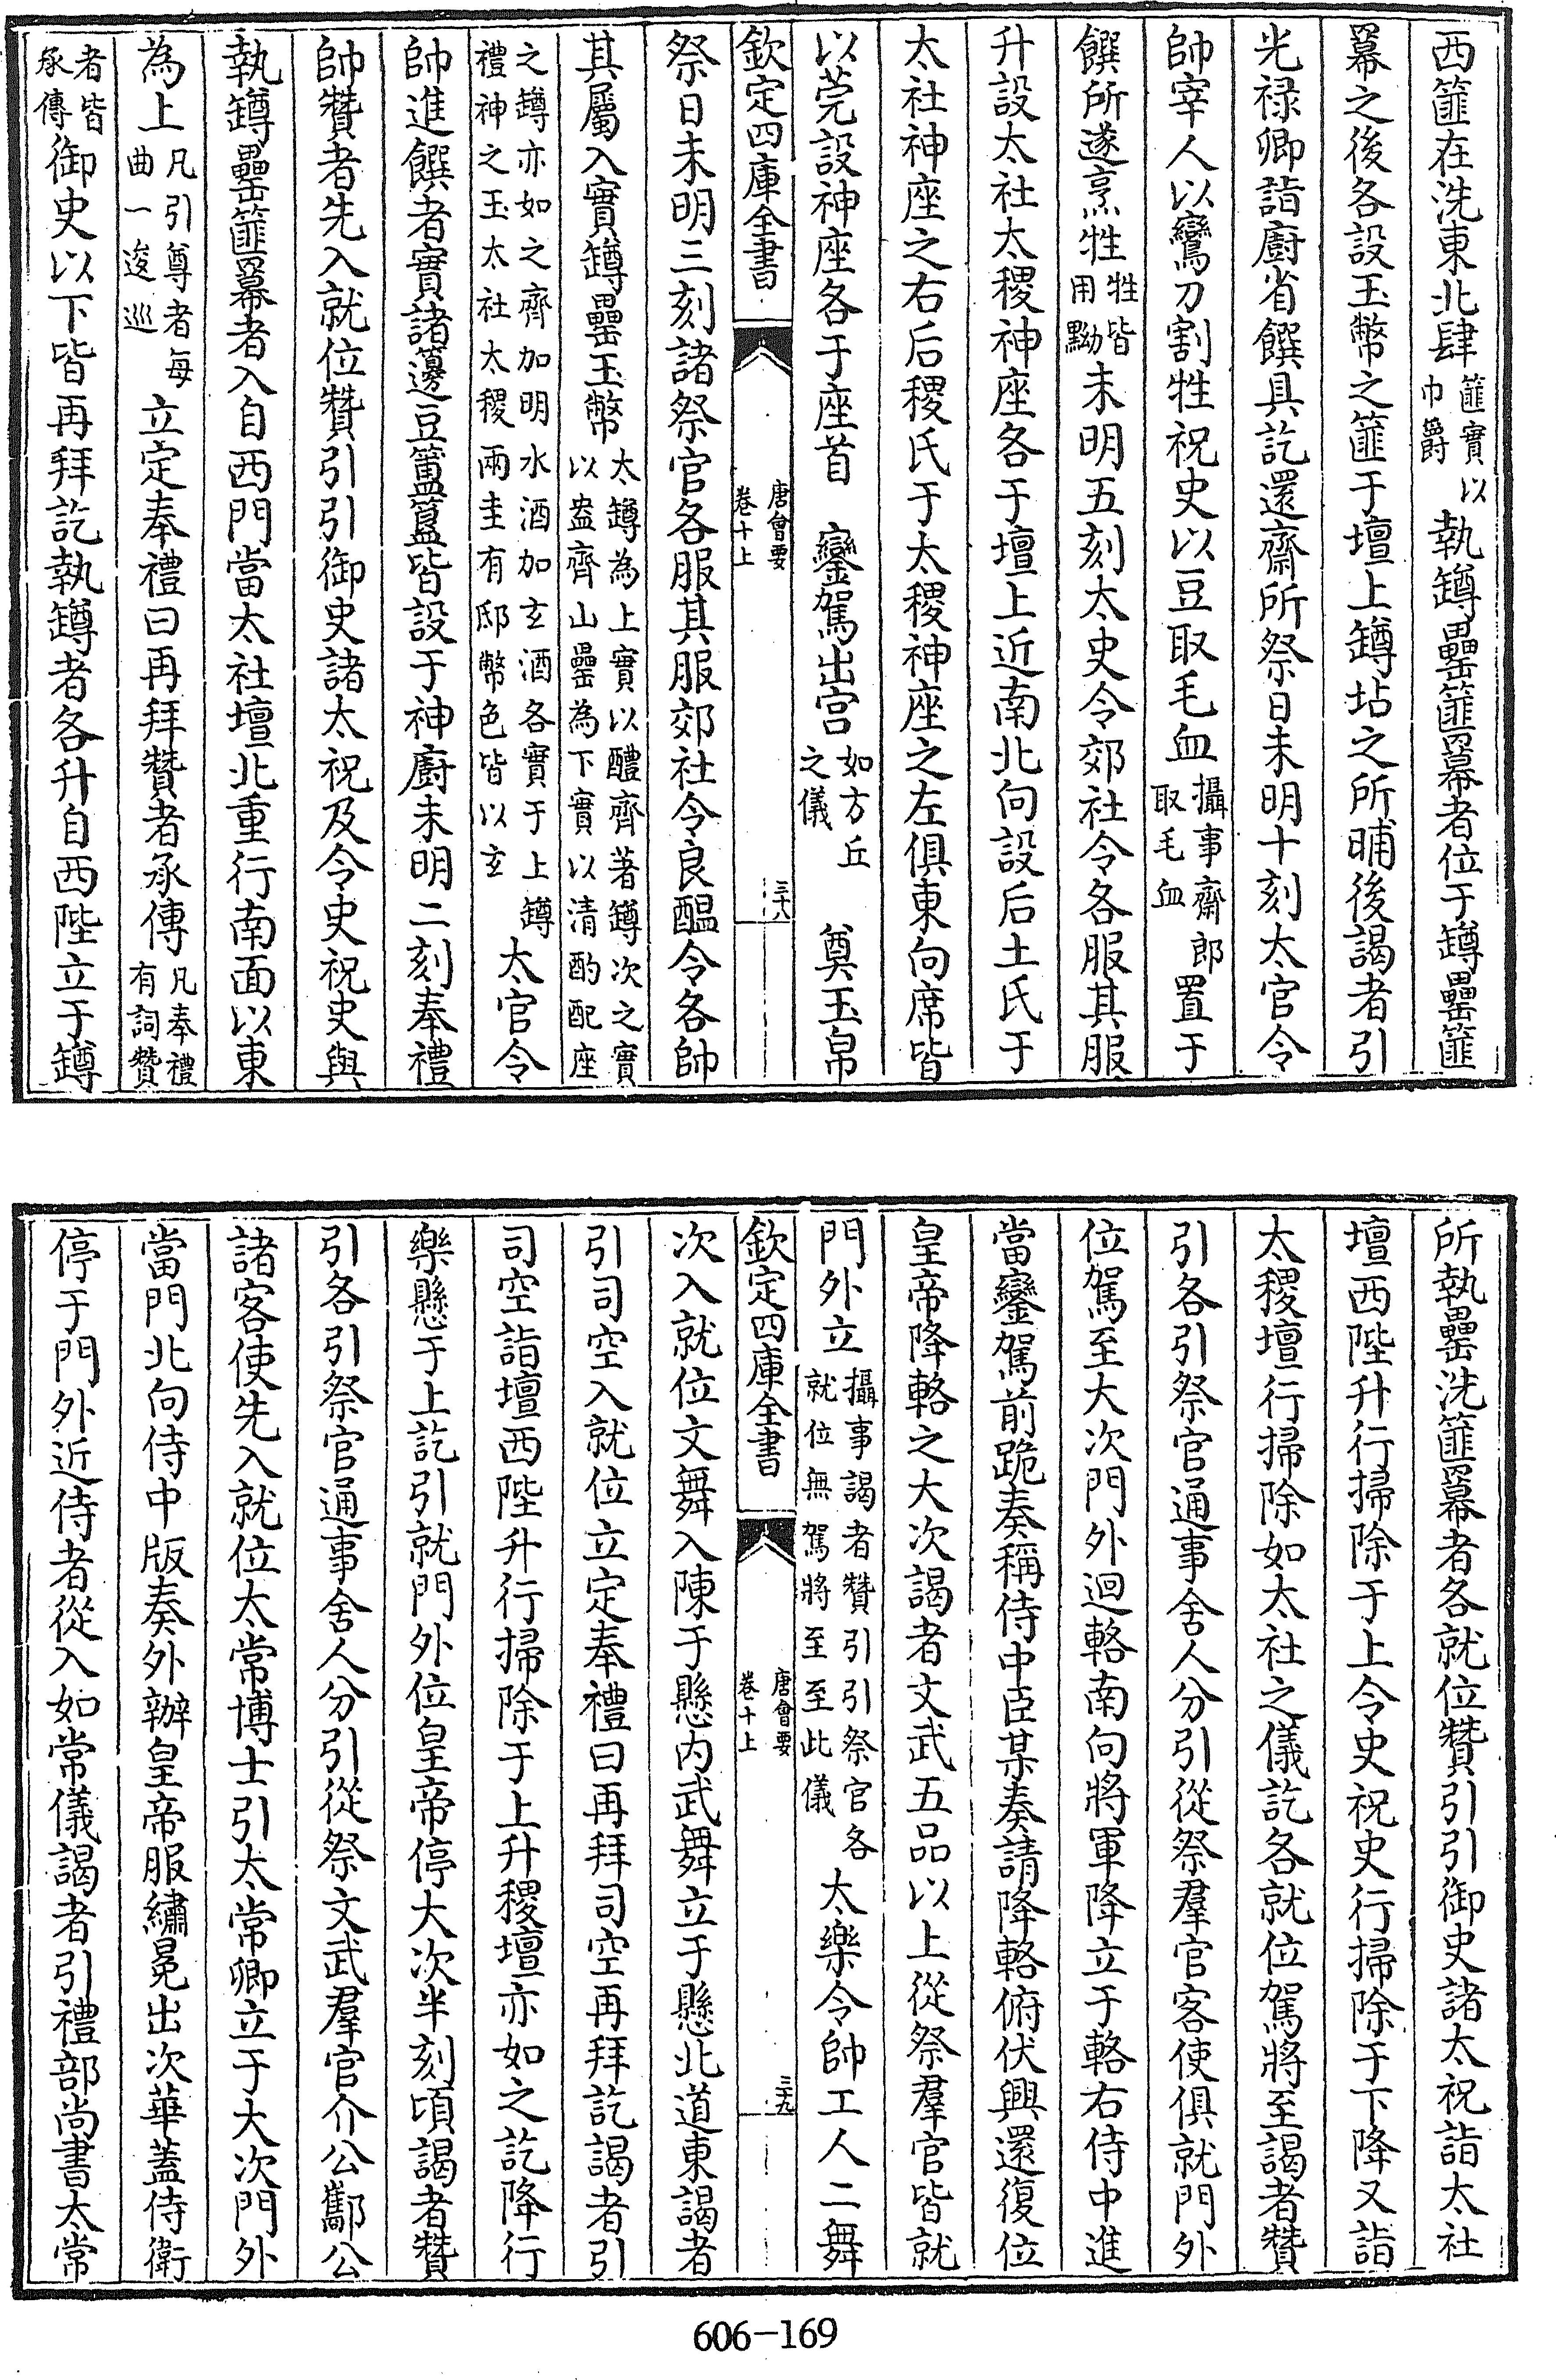 西篚在洗東北肆篚實以巾爵執罇罍篚羃者位于罇罍篚
羃之後各設玉幣之篚于壇上罇坫之所晡後謁者引
光禄卿詣廚省饌具訖還齋所祭日未明十刻太官令
帥宰人以鸞刀割牲祝史以豆取毛血攝事齋郎取毛血置于
饌所遂烹牲牲皆用黝未明五刻太史令郊社令各服其服
升設太社太稷神座各于壇上近南北向設后土氏于
太社神座之右后稷氏于太稷神座之左俱東向席皆
以莞設神座各于座首　鑾駕出宫如方丘之儀　奠玉帛
欽定四庫全書　唐會要卷十上　三十八
祭日未明三刻諸祭官各服其服郊社令良醖令各帥
其屬入實罇罍玉幣太罇為上實以醴齊著罇次之實以盎齊山罍為下實以清酌配座
之罇亦如之齊加明水酒加玄酒各實于上罇禮神之玉太社太稷兩圭有邸幣色皆以玄太官令
帥進饌者實諸籩豆簠簋皆設于神廚未明二刻奉禮
帥贊者先入就位贊引引御史諸太祝及令史祝史與
執罇罍篚羃者入自西門當太社壇北重行南面以東
為上凡引尊者每曲一逡巡立定奉禮曰再拜贊者承傳凡奉禮有詞贊
者皆承傳御史以下皆再拜訖執罇者各升自西陛立于罇
所執罍洗篚羃者各就位贊引引御史諸太祝詣太社
壇西陛升行掃除于上令史祝史行掃除于下降又詣
太稷壇行掃除如太社之儀訖各就位駕將至謁者贊
引各引祭官通事舍人分引從祭羣官客使俱就門外
位駕至大次門外迴輅南向將軍降立于輅右侍中進
當鑾駕前跪奏稱侍中臣某奏請降輅俯伏興還復位
皇帝降輅之大次謁者文武五品以上從祭羣官皆就
門外立攝事謁者贊引引祭官各就位無駕將至至此儀太樂令帥工人二舞
欽定四庫全書　唐會要卷十上　三十九
次入就位文舞入陳于懸内武舞立于懸北道東謁者
引司空入就位立定奉禮曰再拜司空再拜訖謁者引
司空詣壇西陛升行掃除于上升稷壇亦如之訖降行
樂懸于上訖引就門外位皇帝停大次半刻頃謁者贊
引各引祭官通事舍人分引從祭文武羣官介公酅公
諸客使先入就位太常博士引太常卿立于大次門外
當門北向侍中版奏外辦皇帝服繡冕出次華蓋侍衛
停于門外近侍者從入如常儀謁者引禮部尚書太常
606-169